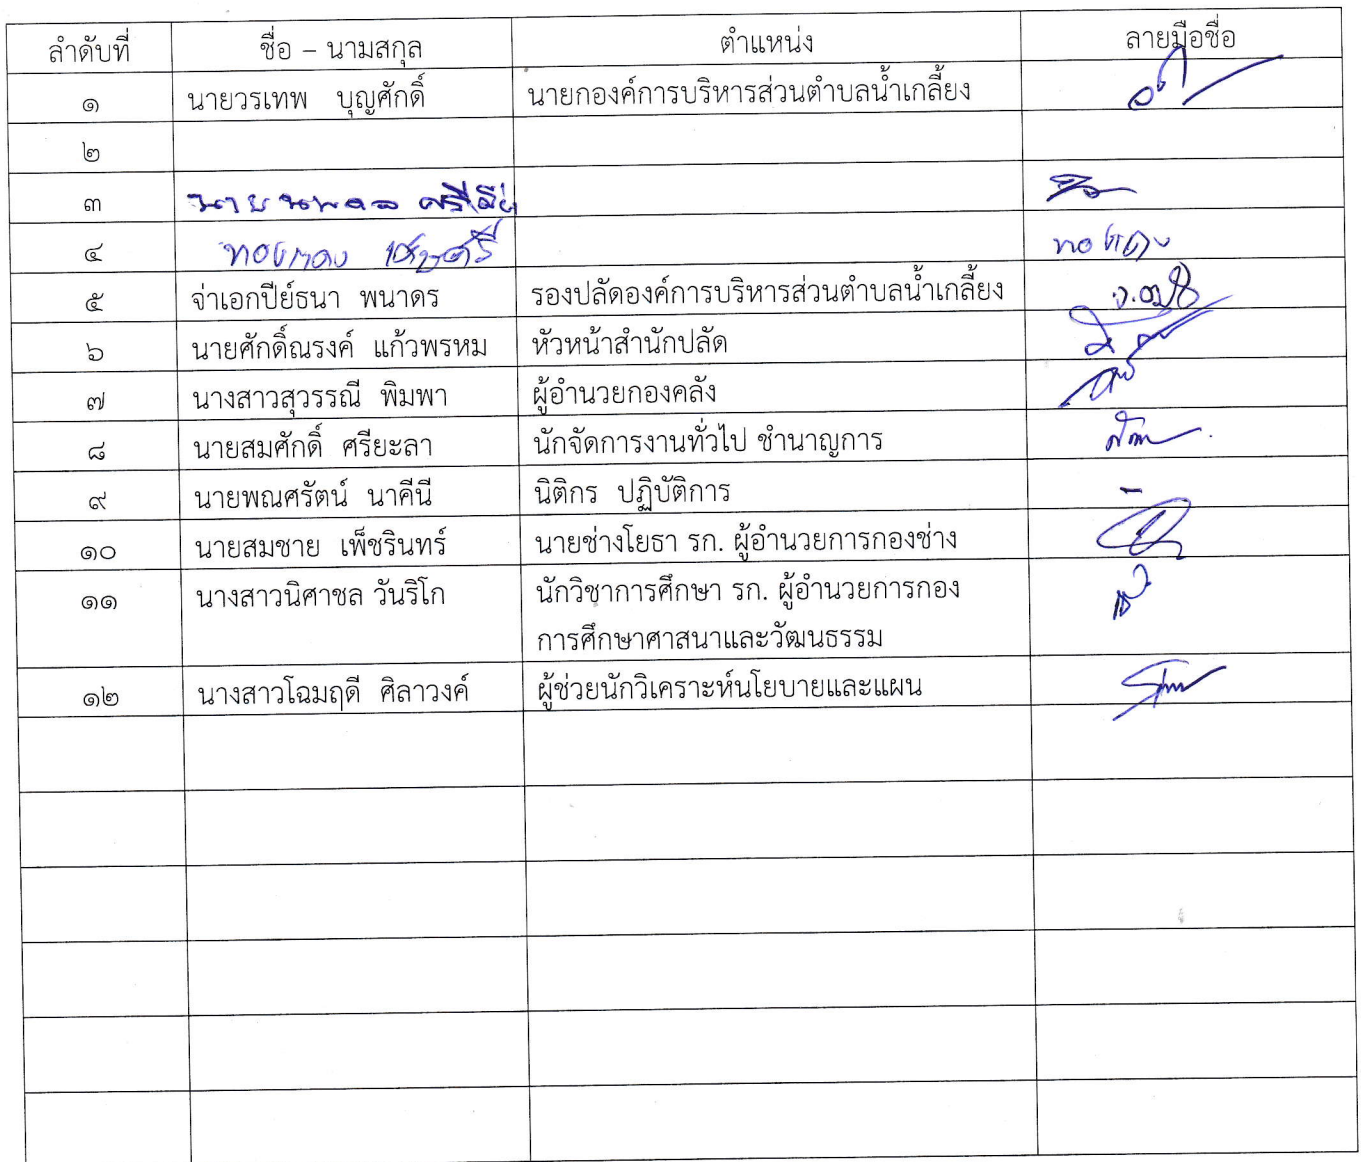 ลำดับที่ ชื่อ – นามสกุล ตำแหน่ง ลายมือชื่อ
๑ นายวรเทพ บุญศักดิ์ นายกองค์การบริหารส่วนตำบลน้ำเกลี้ยง
๒
๓ นาย
๔
๕ จ่าเอกปีย์ธนา พนาดร รองปลัดองค์การบริหารส่วนตำบลน้ำเกลี้ยง
๖ นายศักดิ์ณรงค์ แก้วพรหม หัวหน้าสำนักปลัด
๗ นางสาวสุวรรณี พิมพา ผู้อำนวยกองคลัง
๘ นายสมศักดิ์ ศรียะลา นักจัดการงานทั่วไป ชำนาญการ
๙ นายพณศรัตน์ นาคีนี นิติกร ปฏิบัติการ
๑๐ นายสมชาย เพ็ชรินทร์ นายช่างโยธา รก. ผู้อำนวยการกองช่าง
๑๑ นางสาวนิศาชล วันริโก นักวิชาการศึกษา รก. ผู้อำนวยการกอง
การศึกษาศาสนาและวัฒนธรรม
๑๒ นางสาวโฉมฤดี ศิลาวงค์ ผู้ช่วยนักวิเคราะห์นโยบายและแผน